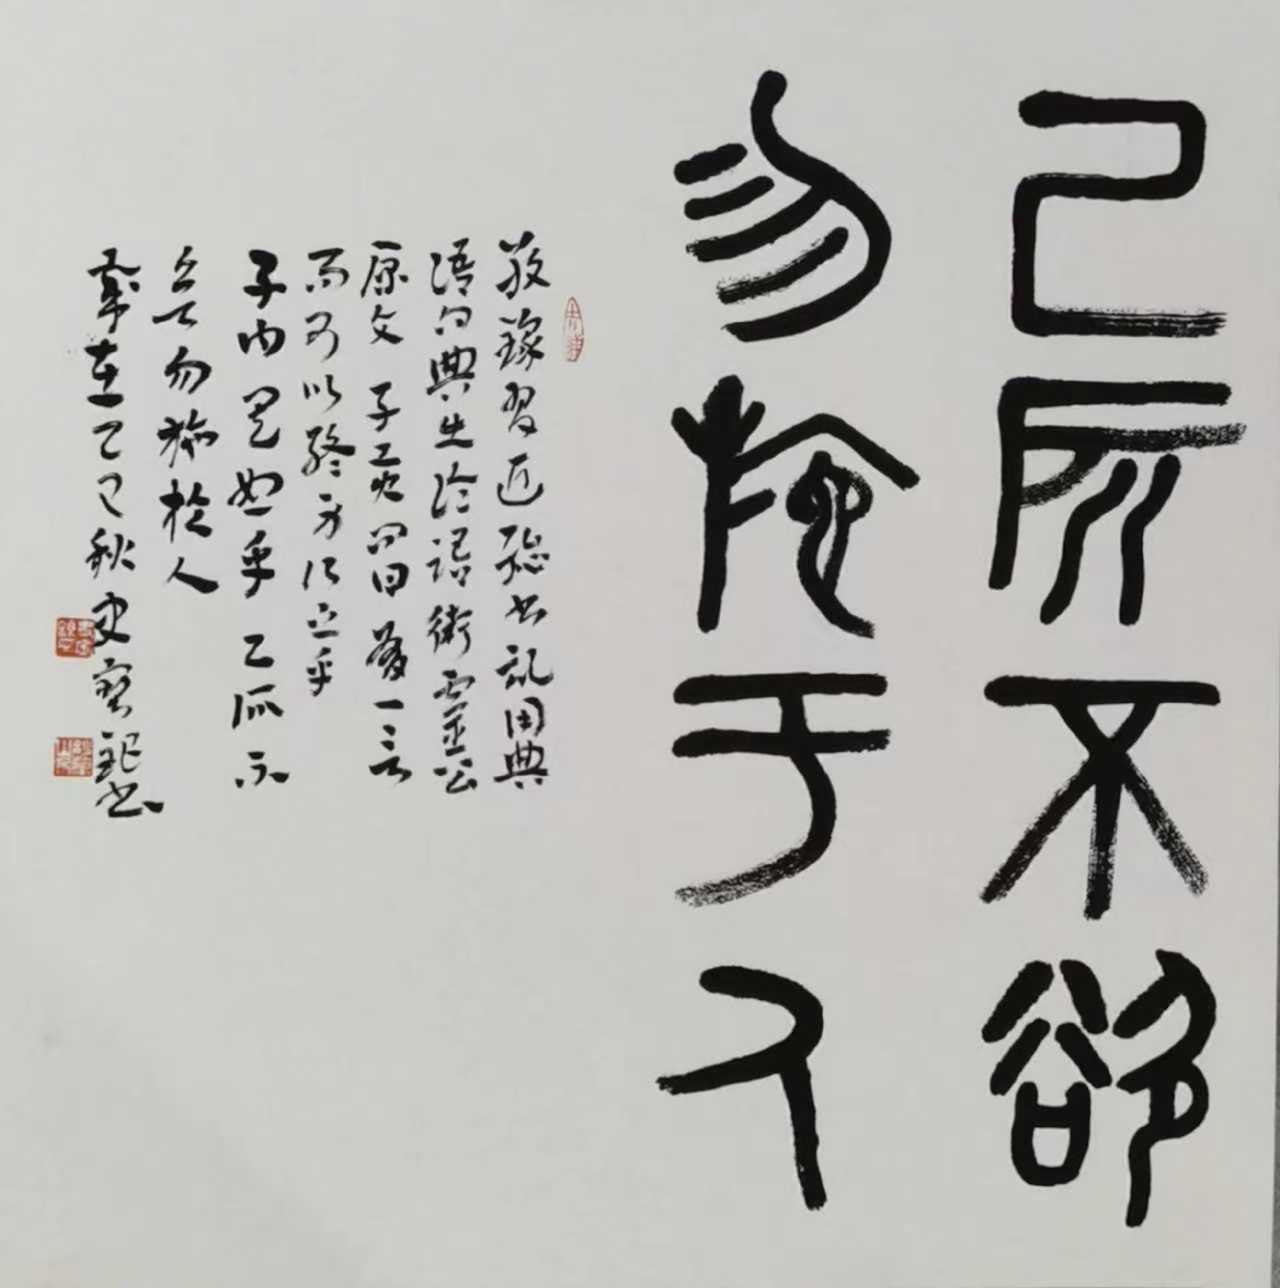 己所不欲
勿施于人
敬錄習近平總書記用典
語句典出論語衛靈公
原文 子貢問曰有一言
而可以終身行之乎
子曰其恕乎己所不
欲勿施於人
歲在乙巳秋史寶 書